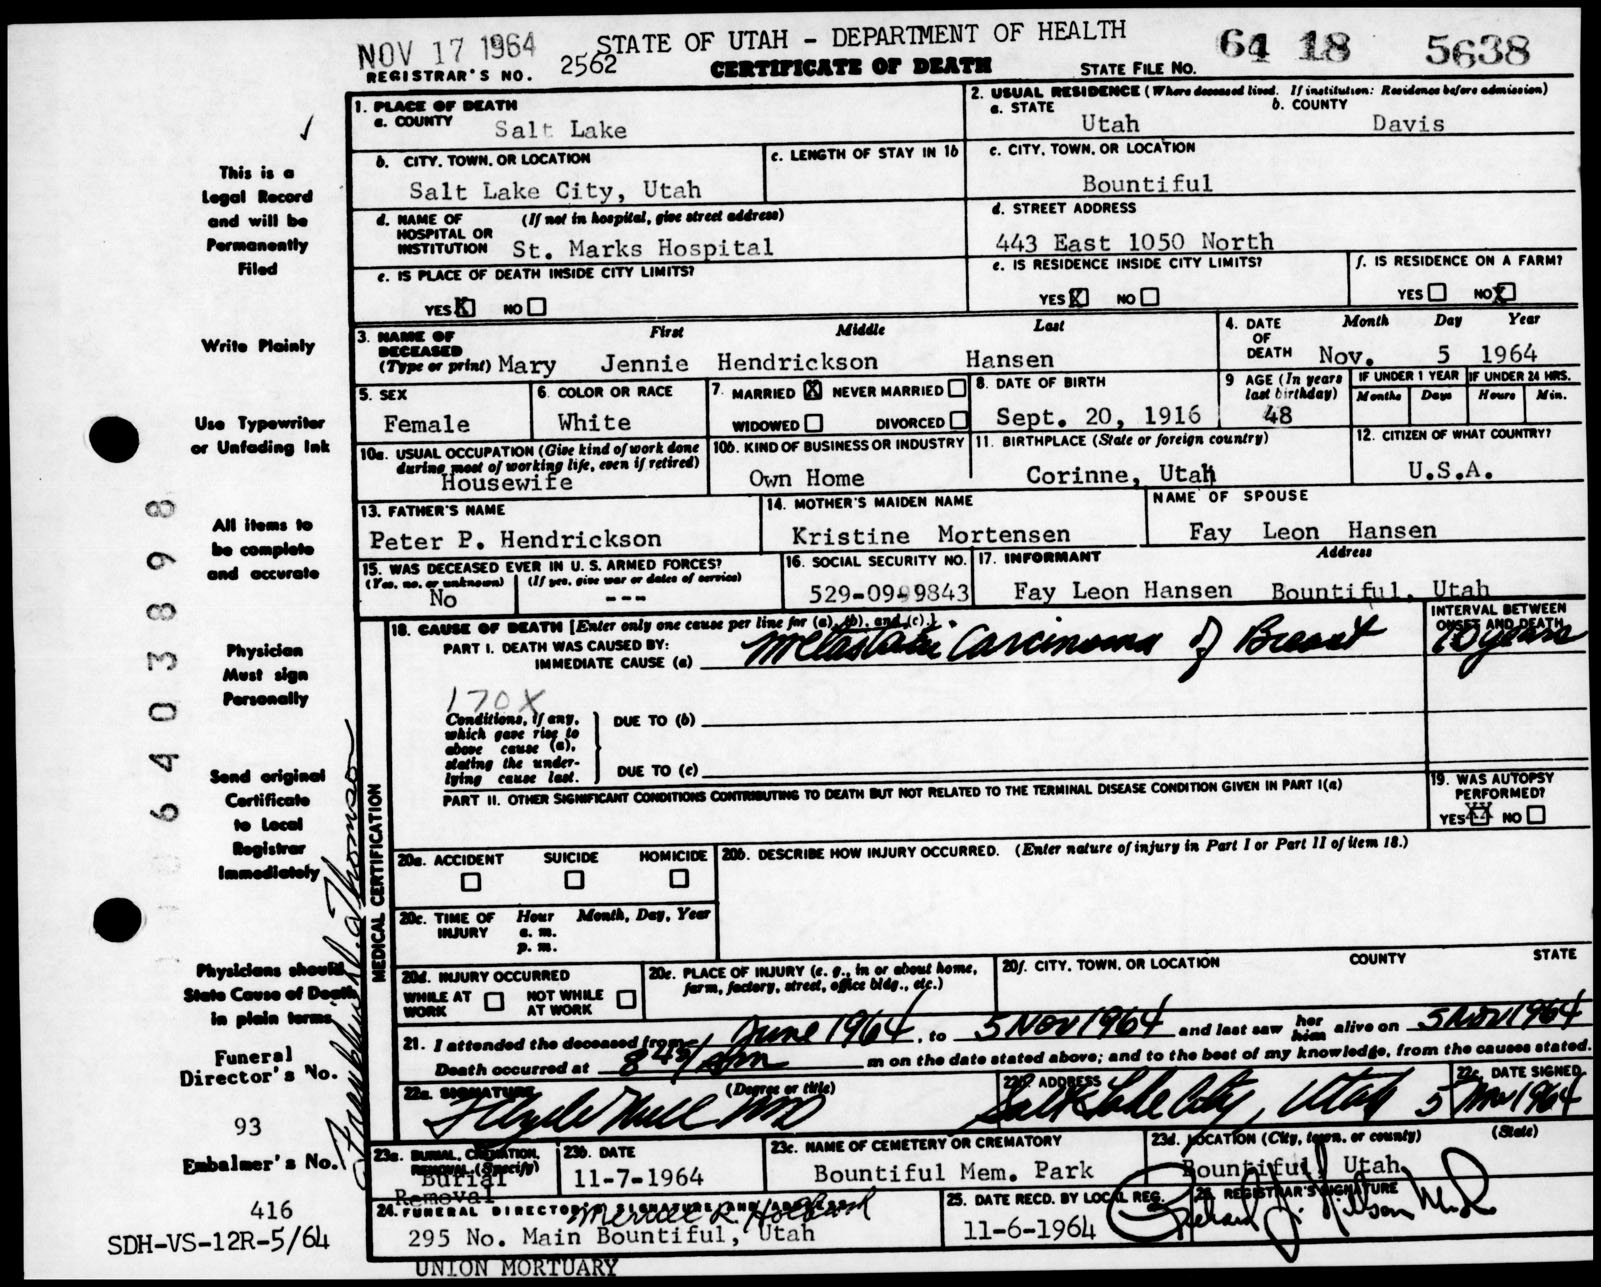 NOV 17 1964
STATE OF UTAH - DEPARTMENT OF HEALTH
64 18 5638
REGISTRAR'S NO. 2562 CERTIFICATE OF DEATH STATE FILE NO.
1. PLACE OF DEATH
a. COUNTY Salt Lake
2. USUAL RESIDENCE (Where deceased lived. If institution: Residence before admission)
a. STATE Utah b. COUNTY Davis
b. CITY, TOWN, OR LOCATION Salt Lake City, Utah
c. LENGTH OF STAY IN 1b
c. CITY, TOWN, OR LOCATION Bountiful
d. NAME OF HOSPITAL OR INSTITUTION (If not in hospital, give street address) St. Marks Hospital
d. STREET ADDRESS 443 East 1050 North
e. IS PLACE OF DEATH INSIDE CITY LIMITS?
YES X NO
e. IS RESIDENCE INSIDE CITY LIMITS?
YES X NO
f. IS RESIDENCE ON A FARM?
YES NO X
3. NAME OF DECEASED (Type or print) First Middle Last
Mary Jennie Hendrickson Hansen
4. DATE OF DEATH Month Day Year
Nov. 5 1964
5. SEX Female
6. COLOR OR RACE White
7. MARRIED X NEVER MARRIED
WIDOWED DIVORCED
8. DATE OF BIRTH Sept. 20, 1916
9 AGE (In years last birthday) 48
IF UNDER 1 YEAR Months Days
IF UNDER 24 HRS. Hours Min.
10a. USUAL OCCUPATION (Give kind of work done during most of working life, even if retired)
Housewife
10b. KIND OF BUSINESS OR INDUSTRY
Own Home
11. BIRTHPLACE (State or foreign country)
Corinne, Utah
12. CITIZEN OF WHAT COUNTRY?
U.S.A.
13. FATHER'S NAME
Peter P. Hendrickson
14. MOTHER'S MAIDEN NAME
Kristine Mortensen
NAME OF SPOUSE
Fay Leon Hansen
15. WAS DECEASED EVER IN U. S. ARMED FORCES?
(Yes, no, or unknown) (If yes, give war or dates of service)
No ---
16. SOCIAL SECURITY NO.
529-09-9843
17. INFORMANT Address
Fay Leon Hansen Bountiful, Utah
18. CAUSE OF DEATH [Enter only one cause per line for (a), (b), and (c).]
INTERVAL BETWEEN ONSET AND DEATH
PART I. DEATH WAS CAUSED BY:
IMMEDIATE CAUSE (a) Metastatic Carcinoma of Breast 10 years
170X
Conditions, if any, which gave rise to above cause (a), stating the underlying cause last.
DUE TO (b)
DUE TO (c)
PART II. OTHER SIGNIFICANT CONDITIONS CONTRIBUTING TO DEATH BUT NOT RELATED TO THE TERMINAL DISEASE CONDITION GIVEN IN PART I(a)
19. WAS AUTOPSY PERFORMED?
YES XX NO
MEDICAL CERTIFICATION
20a. ACCIDENT SUICIDE HOMICIDE
20b. DESCRIBE HOW INJURY OCCURRED. (Enter nature of injury in Part I or Part II of item 18.)
20c. TIME OF INJURY Hour Month, Day, Year
a. m.
p. m.
20d. INJURY OCCURRED
WHILE AT WORK NOT WHILE AT WORK
20e. PLACE OF INJURY (e. g., in or about home, farm, factory, street, office bldg., etc.)
20f. CITY, TOWN, OR LOCATION COUNTY STATE
21. I attended the deceased from June 1964, to 5 Nov 1964 and last saw her him alive on 5 Nov 1964
Death occurred at 8 45 m on the date stated above; and to the best of my knowledge, from the causes stated.
22a. SIGNATURE (Degree or title)
MD
22b. ADDRESS Salt Lake City, Utah
22c. DATE SIGNED 5 Nov 1964
23a. BURIAL, CREMATION, REMOVAL (Specify)
Burial
Removal
23b. DATE
11-7-1964
23c. NAME OF CEMETERY OR CREMATORY
Bountiful Mem. Park
23d. LOCATION (City, town, or county) (State)
Bountiful, Utah
24. FUNERAL DIRECTOR'S SIGNATURE AND ADDRESS
295 No. Main Bountiful, Utah
UNION MORTUARY
25. DATE RECD. BY LOCAL REG.
11-6-1964
26. REGISTRAR'S SIGNATURE
This is a
Legal Record
and will be
Permanently
Filed
Write Plainly
Use Typewriter
or Unfading Ink
All items to
be complete
and accurate
Physician
Must sign
Personally
Send original
Certificate
to Local
Registrar
Immediately
Physicians should
State Cause of Death
in plain terms
Funeral
Director's No.
93
Embalmer's No.
416
SDH-VS-12R-5/64
64038898